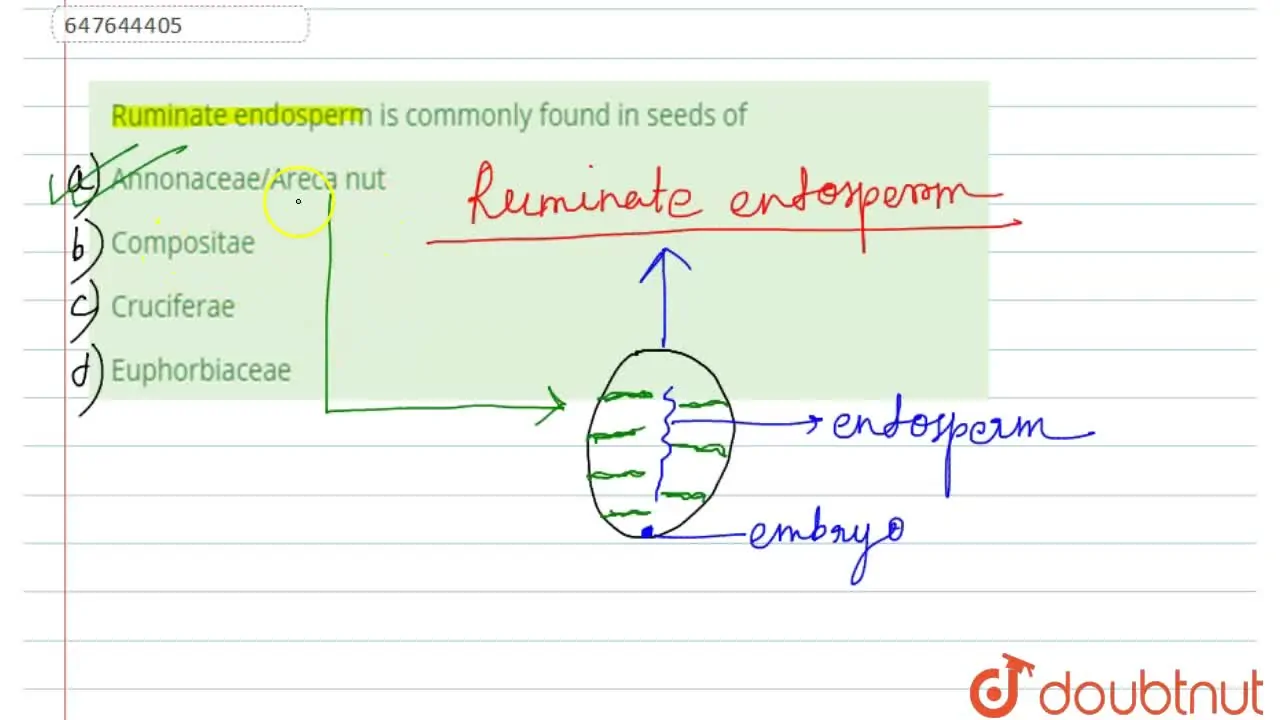 647644405
Ruminate endosperm is commonly found in seeds of
a) Annonaceae/Areca nut
Ruminate endosperm
b) Compositae
c) Cruciferae
d) Euphorbiaceae
endosperm
embryo
doubtnut